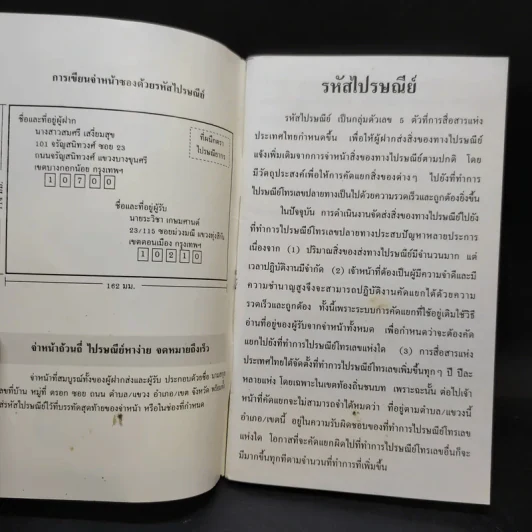 การเขียนจ่าหน้าซองด้วยรหัสไปรษณีย์
ชื่อและที่อยู่ผู้ฝาก
นางสาวสมศรี เสงี่ยมสุข
101 จรัญสนิทวงศ์ ซอย 23
ถนนจรัญสนิทวงศ์ แขวงบางขุนศรี
เขตบางกอกน้อย กรุงเทพฯ
10700
ที่ผนึกตรา
ไปรษณียากร
ชื่อและที่อยู่ผู้รับ
นายระวิชา เกษมศานต์
23/115 ซอยม่วงมณี แขวงทุ่งสีกัน
เขตดอนเมือง กรุงเทพฯ
10210
162 มม.
จ่าหน้าถ้วนถี่ ไปรษณีย์หาง่าย จดหมายถึงเร็ว
จ่าหน้าที่สมบูรณ์ทั้งของผู้ฝากส่งและผู้รับ ประกอบด้วยชื่อ
เลขที่บ้าน หมู่ที่ ตรอก ซอย ถนน ตำบล/แขวง อำเภอ/เขต จังหวัด
รหัสไปรษณีย์ไว้ที่บรรทัดสุดท้ายของจ่าหน้า หรือในช่องที่กำหนด
รหัสไปรษณีย์
รหัสไปรษณีย์ เป็นกลุ่มตัวเลข 5 ตัวที่การสื่อสารแห่ง
ประเทศไทยกำหนดขึ้น เพื่อให้ผู้ฝากส่งสิ่งของทางไปรษณีย์
แจ้งเพิ่มเติมจากการจ่าหน้าสิ่งของทางไปรษณีย์ตามปกติ โดย
มีวัตถุประสงค์เพื่อให้การคัดแยกสิ่งของต่าง ๆ ไปยังที่ทำการ
ไปรษณีย์โทรเลขปลายทางเป็นไปด้วยความรวดเร็วและถูกต้องยิ่งขึ้น
ในปัจจุบัน การดำเนินงานจัดส่งสิ่งของทางไปรษณีย์ไปยัง
ที่ทำการไปรษณีย์โทรเลขปลายทางประสบปัญหาหลายประการ
เนื่องจาก (1) ปริมาณสิ่งของส่งทางไปรษณีย์มีจำนวนมาก แต่
เวลาปฏิบัติงานมีจำกัด (2) เจ้าหน้าที่ต้องเป็นผู้มีความจำดีและมี
ความชำนาญสูงจึงจะสามารถปฏิบัติงานคัดแยกได้ด้วยความ
รวดเร็วและถูกต้อง ทั้งนี้เพราะระบบการคัดแยกที่ใช้อยู่เดิมใช้วิธี
อ่านที่อยู่ของผู้รับจากจ่าหน้าทั้งหมด เพื่อกำหนดว่าจะต้องคัด
แยกไปยังที่ทำการไปรษณีย์โทรเลขแห่งใด (3) การสื่อสารแห่ง
ประเทศไทยได้จัดตั้งที่ทำการไปรษณีย์โทรเลขเพิ่มขึ้นทุกๆ ปี ปีละ
หลายแห่ง โดยเฉพาะในเขตท้องถิ่นชนบท เพราะฉะนั้น ต่อไปเจ้า
หน้าที่คัดแยกจะไม่สามารถจำได้หมดว่า ที่อยู่ตามตำบล/แขวงนี้
อำเภอ/เขตนี้ อยู่ในความรับผิดชอบของที่ทำการไปรษณีย์โทรเลข
แห่งใด โอกาสที่จะคัดแยกผิดไปที่ทำการไปรษณีย์โทรเลขอื่นก็จะ
มีมากขึ้นทุกทีตามจำนวนที่ทำการที่เพิ่มขึ้น